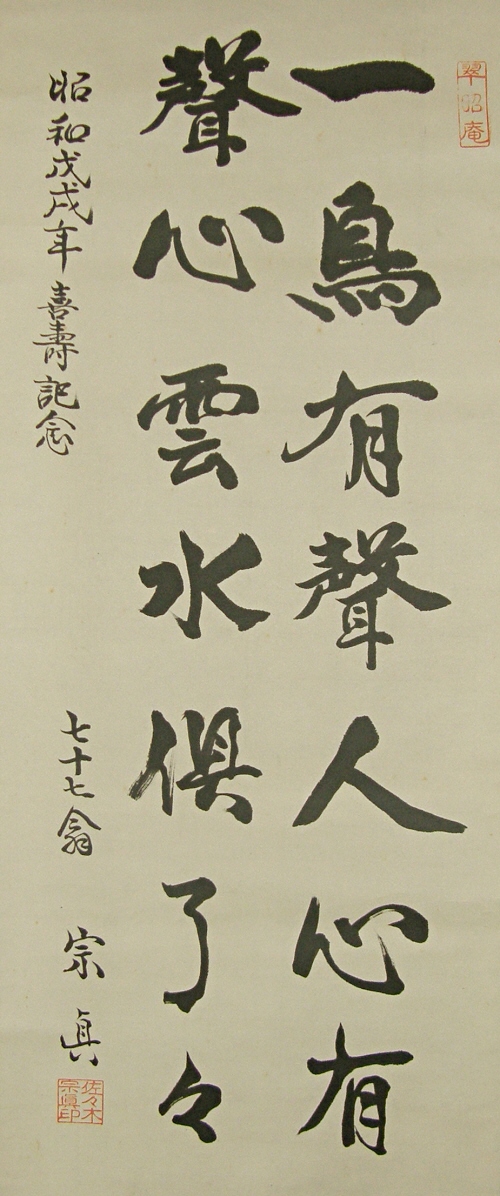 翠昭庵
一鳥有聲人心有
聲心雲水俱了々
昭和戊戌年喜壽記念
七十七翁 宗眞
佐々木宗眞印